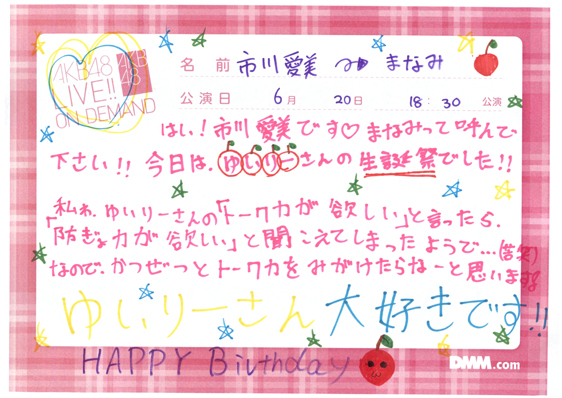 AKB48
LIVE!!
ON DEMAND
AKB
48
名前 市川愛美 まなみ
公演日 6月 20日 18:30 公演
はい!市川愛美です♡まなみって呼んで
下さい!!今日は、ゆいりーさんの生誕祭でした!!
私ね、ゆいりーさんの「トーク力が欲しい」と言ったら、
「防ぎょ力が欲しい」と聞こえてしまったようで…(苦笑)
なので、かつぜつとトーク力をみがけたらねーと思います!
ゆいりーさん大好きです!!
HAPPY Birthday
DMM.com